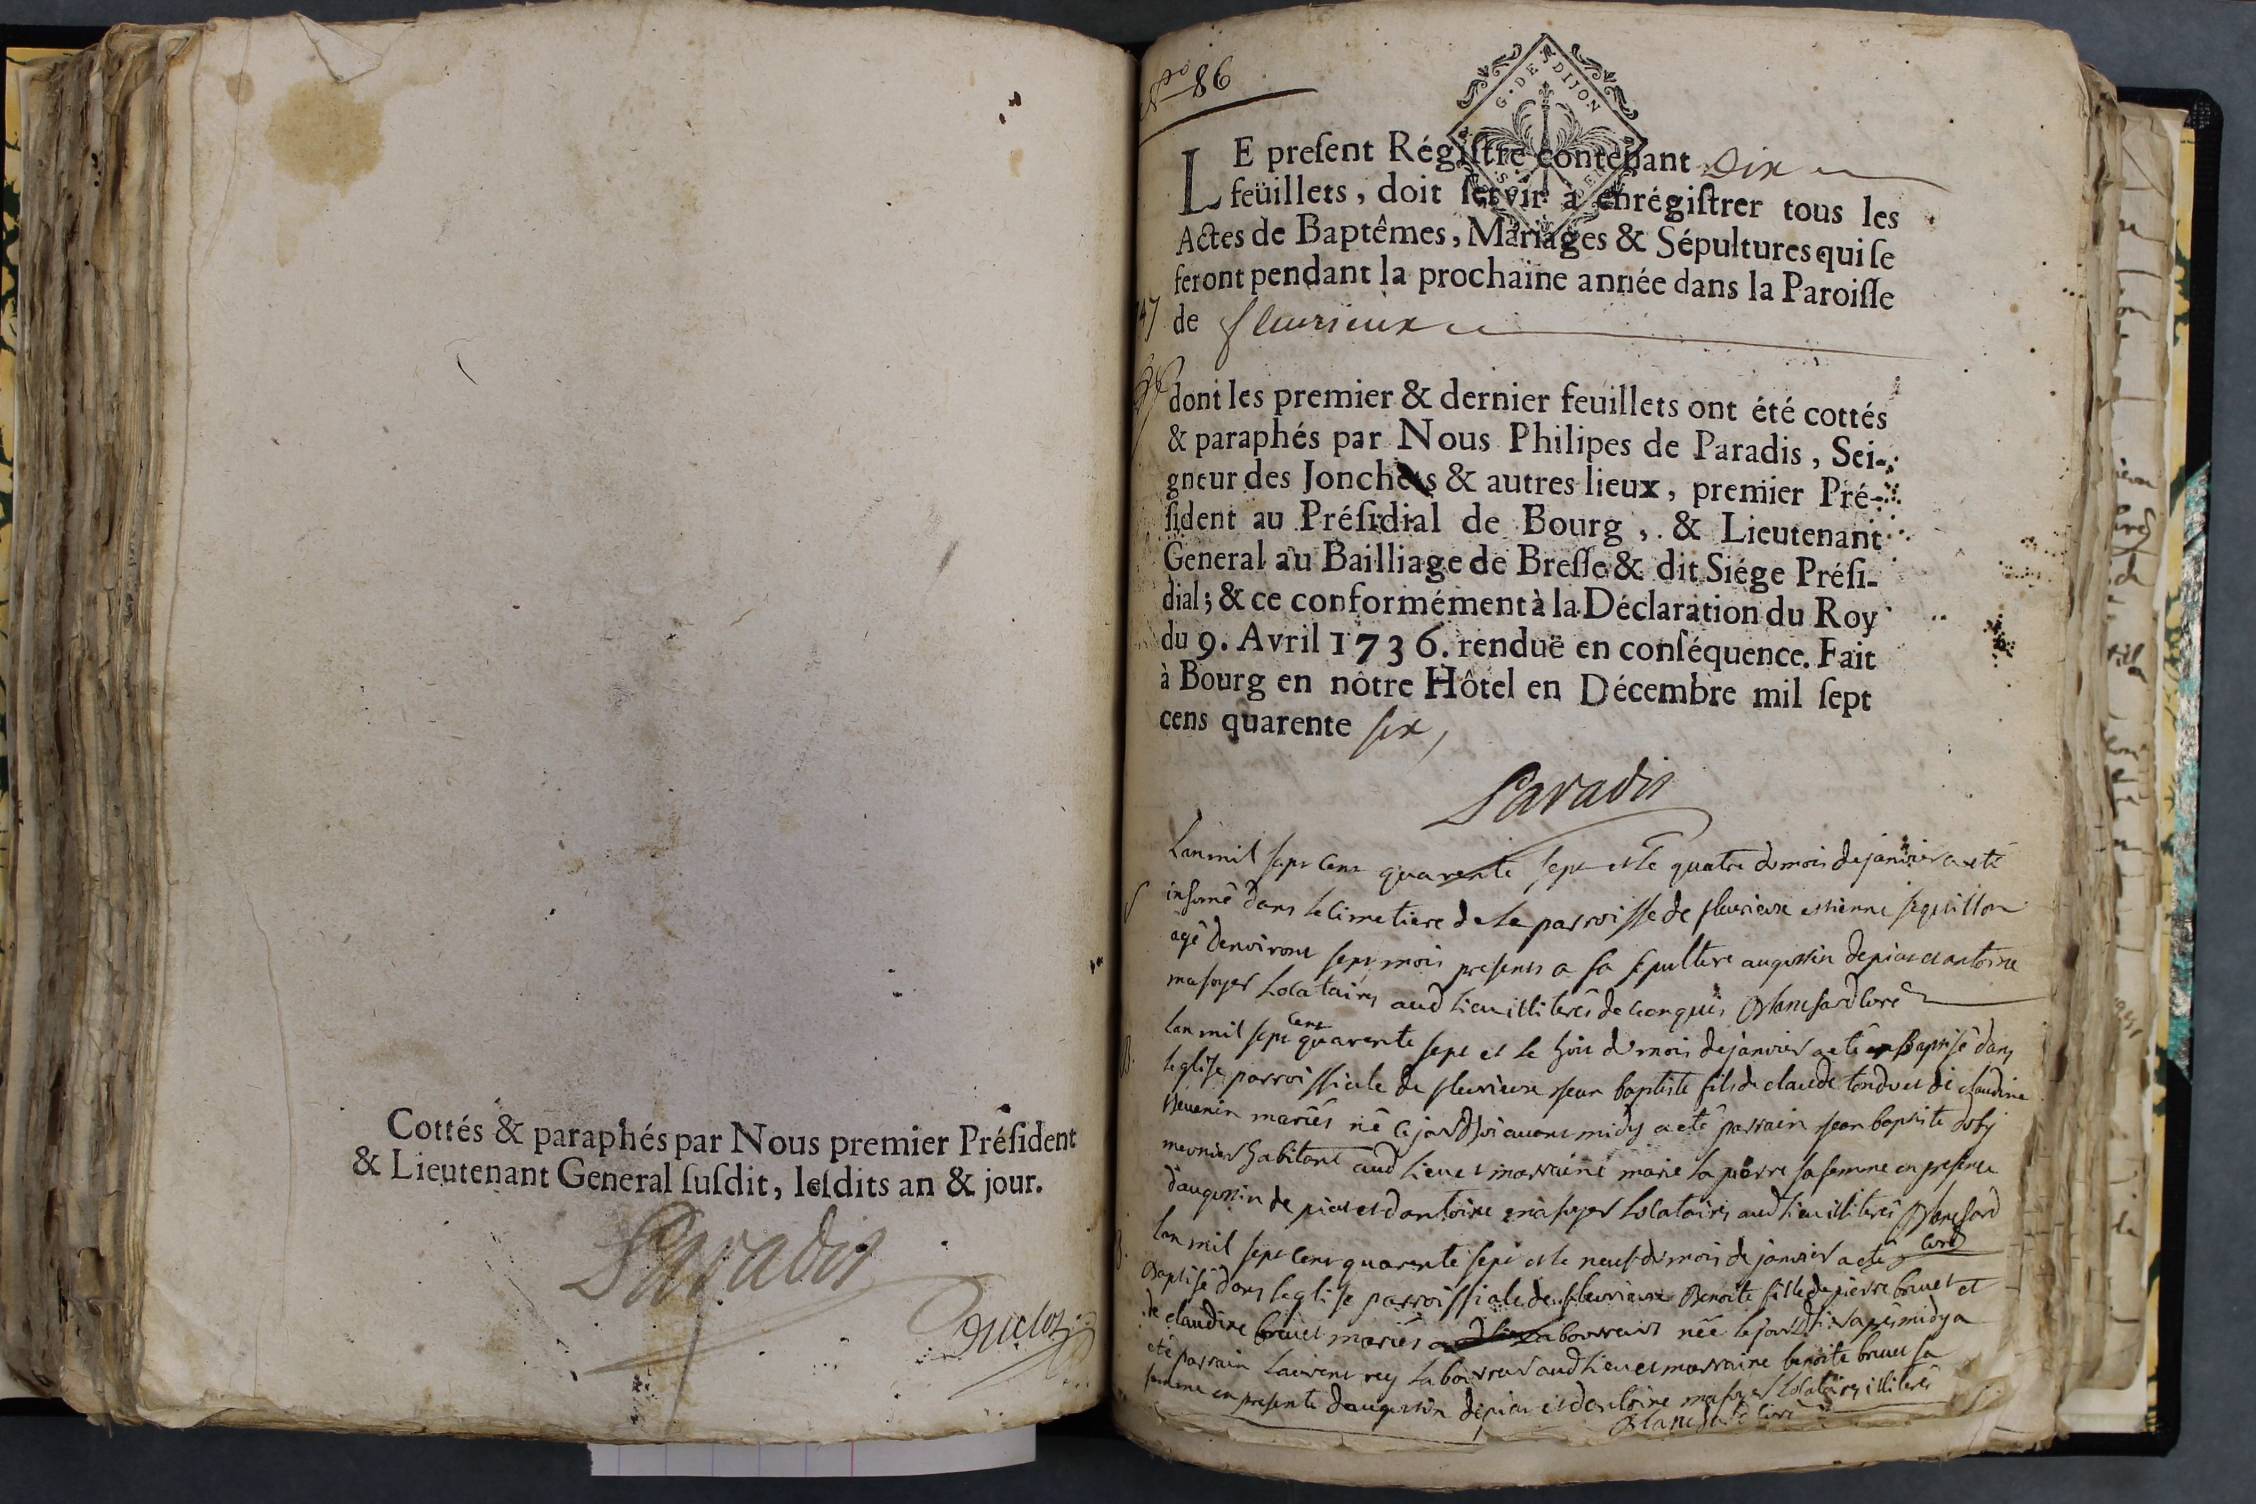 Cottés & paraphés par Nous premier Préſident
& Lieutenant General ſuſdit, leſdits an & jour.
Paradis
Duclos
N.o 86
G. DE DIJON
LE preſent Régiſtre contenant Dix
feüillets, doit ſervir à enrégiſtrer tous les
Actes de Baptêmes, Mariages & Sépultures qui ſe
feront pendant la prochaine année dans la Paroiſſe
de fleurieux
dont les premier & dernier feuillets ont été cottés
& paraphés par Nous Philipes de Paradis, Sei-
gneur des Jonchets & autres lieux, premier Pré-
ſident au Préſidial de Bourg, & Lieutenant
General au Bailliage de Breſſe & dit Siége Préſi-
dial; & ce conformément à la Déclaration du Roy
du 9. Avril 1736. renduë en conſéquence. Fait
à Bourg en nôtre Hôtel en Décembre mil ſept
cens quarente six,
Paradis
Lan mil sept cent quarente sept et le quatre du mois de janvier a eté
S inhumé dans le cimetiere de la parroisse de fleurieux estienne
agé denviront sept mois presents a sa sepulture augustin depiat et antoine
masoyer Locataires aud lieu illiterés de ce requis Blanchard curé
B. lan mil sept cent quarente sept et le huit du mois de janvier a eté Baptisé dans
leglise parroissiale de fleurieux jean baptiste fils de claude tondu et de claudine
mariés né ce jourdhui avant midy a eté parrain jean baptiste
meunier habitant aud lieu et marraine marie la pierre sa femme en presence
daugustin de piat et dantoine masoyer Locataires aud lieu illiterés Blanchard
curé
B. lan mil sept cent quarente sept et le neuf du mois de janvier a eté
Baptisé dans leglise parroissiale de fleurieux Benoite fille de pierre bruet et
de claudine bruet mariés laboureurs née le jour dhier apres midy a
eté parrain Laurent rey laboureur aud lieu et marraine benoite bruet sa
femme en presente daugustin depiat et dantoine masoyer Locataires illiterés
Blanchard curé